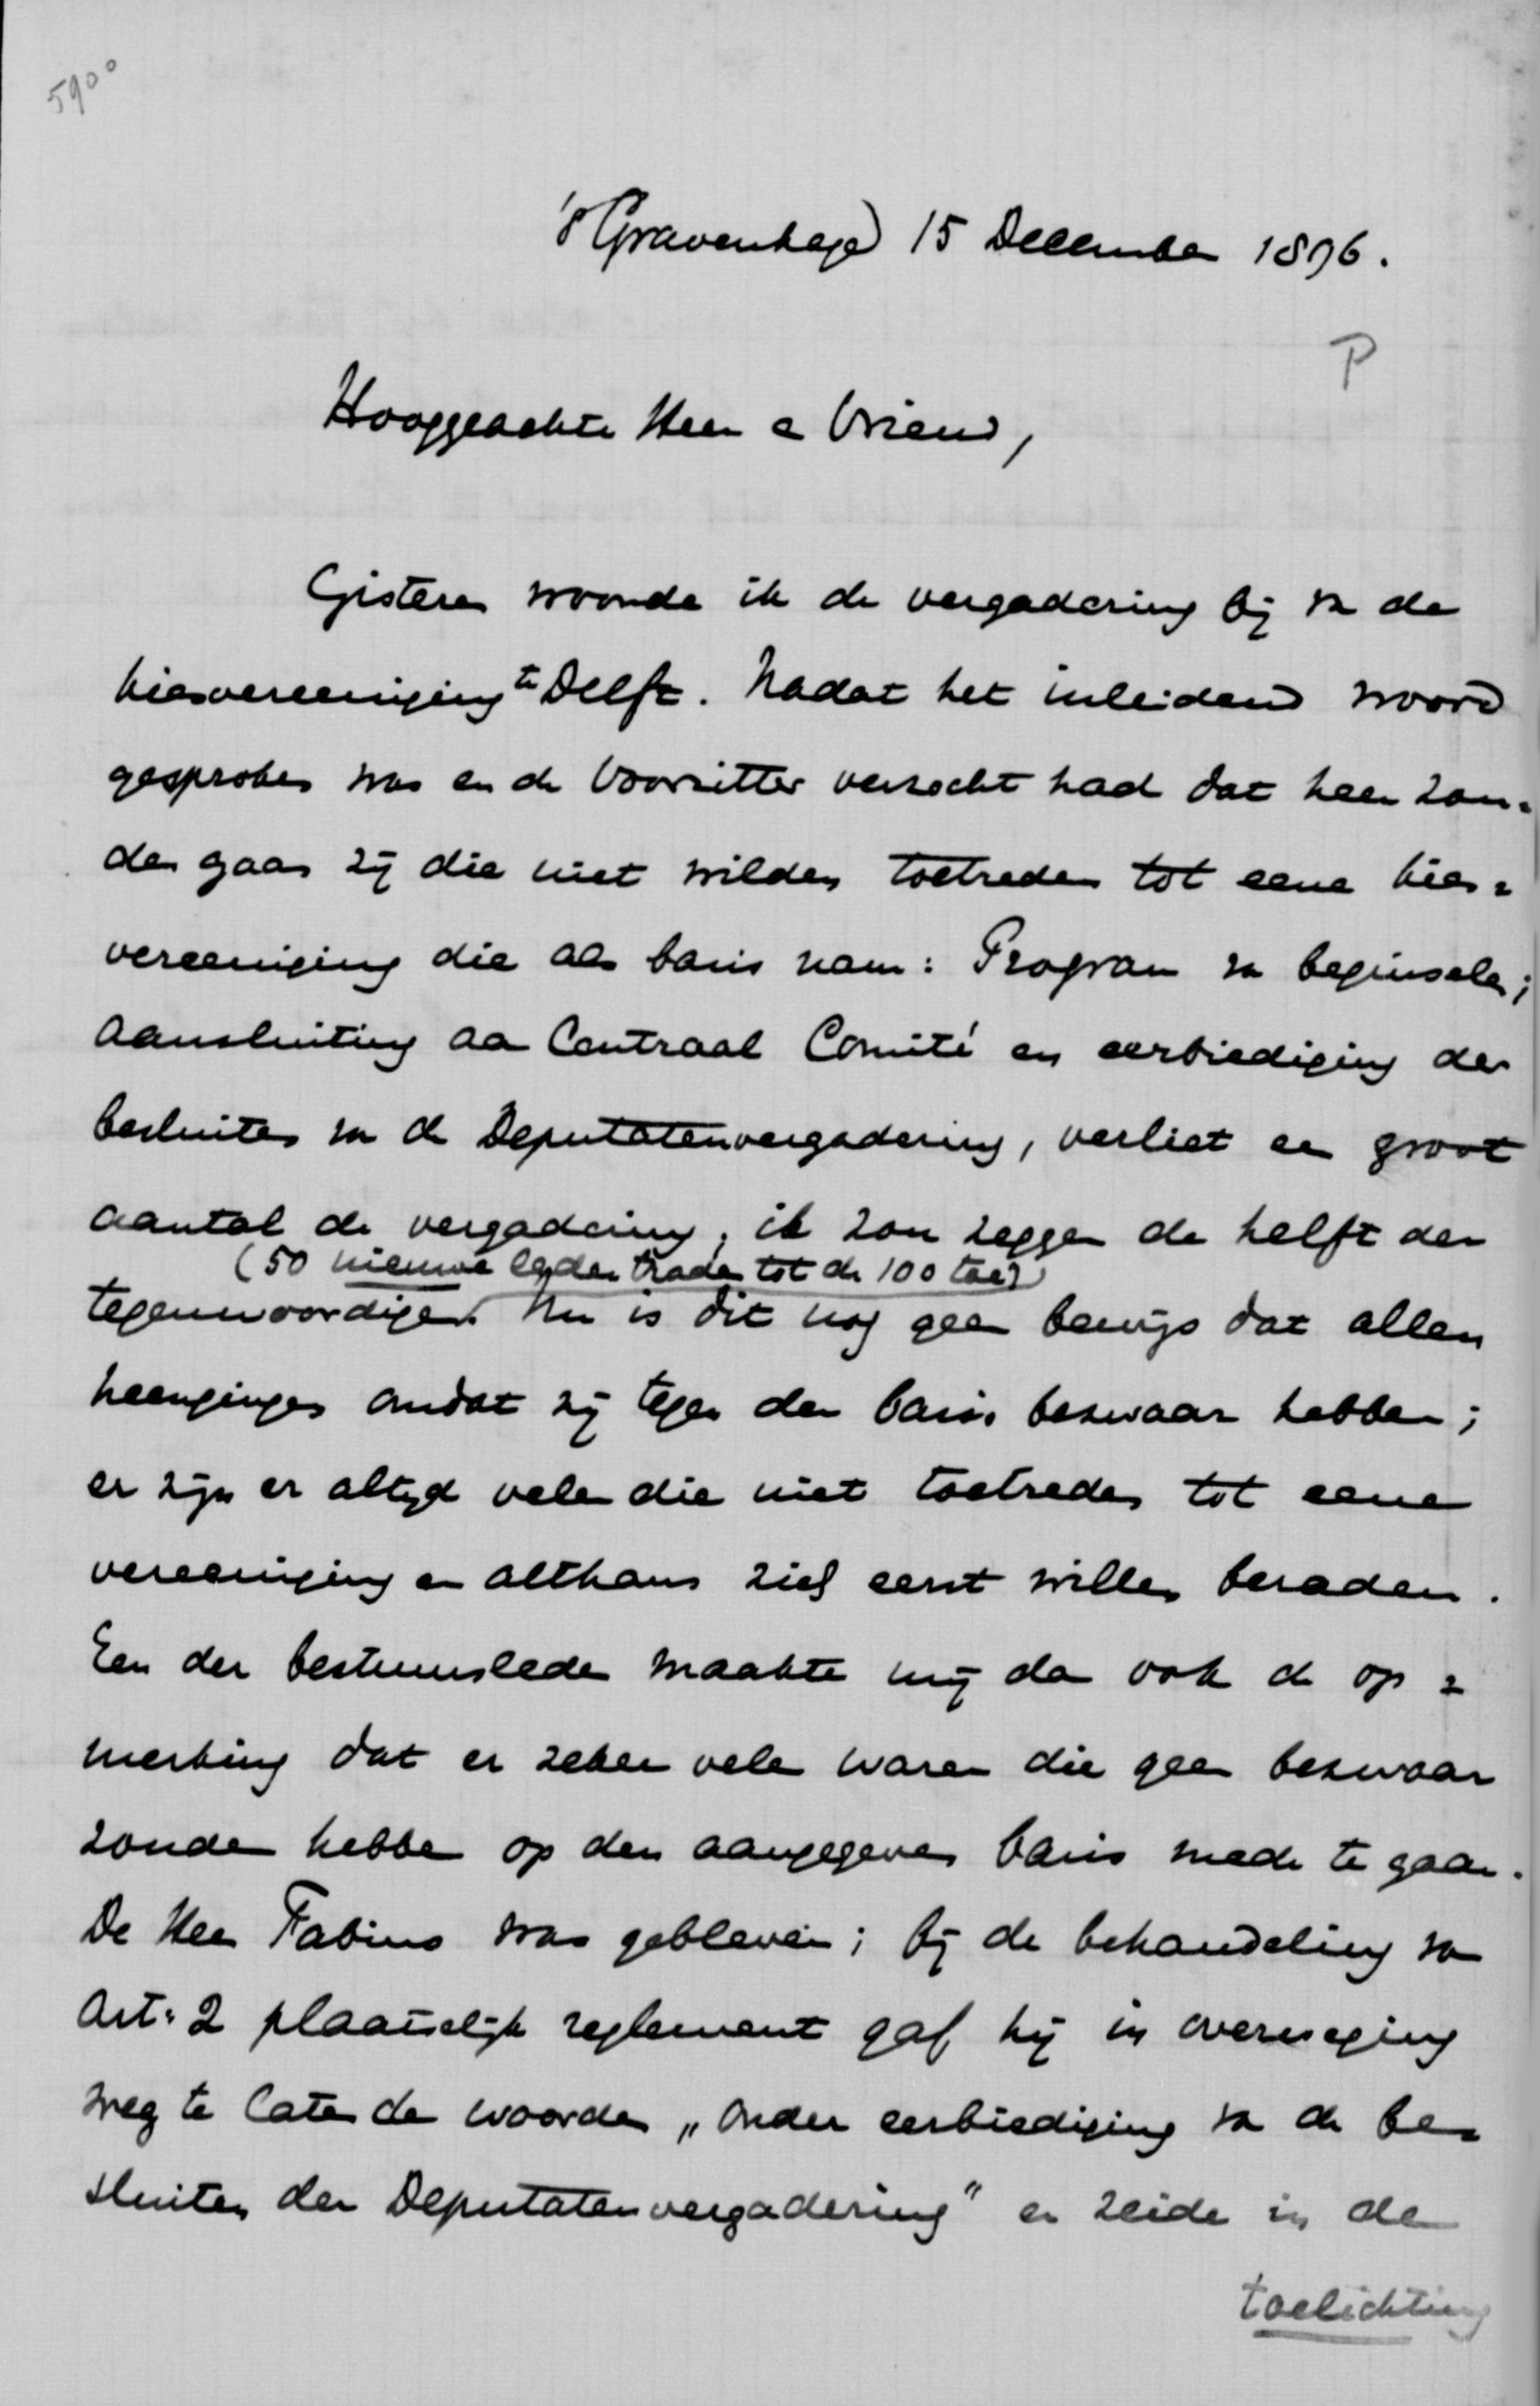 5900
's Gravenhage 15 December 1896.
P
Hooggeachte Heer en Vriend,
Gisteren woonde ik de vergadering bij van de
kiesvereeniging te Delft. Nadat het inleidend woord
gesproken was en de Voorzitter verzocht had dat heen zou-
den gaan zij die niet wilden toetreden tot eene kies-
vereeniging die als basis nam: Program van beginselen;
aansluiting aan Centraal Comité en eerbiediging der
besluiten van de Deputatenvergadering, verliet een groot
aantal de vergadering, ik zou zeggen de helft der
(50 nieuwe leden traden tot de 100 toe)
tegenwoordigen. Nu is dit nog geen bewijs dat allen
heengingen omdat zij tegen den basis bezwaar hebben;
er zijn er altijd velen die niet toetreden tot eene
vereeniging en althans zich eerst willen beraden.
Een der bestuursleden maakte mij dan ook de op-
merking dat er zeker velen waren die geen bezwaar
zouden hebben op den aangegeven basis mede te gaan.
De Heer Fabius was gebleven; bij de behandeling van
Art. 2 plaatselijk reglement gaf hij in overweging
weg te laten de woorden „onder eerbiediging van de be-
sluiten der Deputatenvergadering" en zeide in de
toelichting